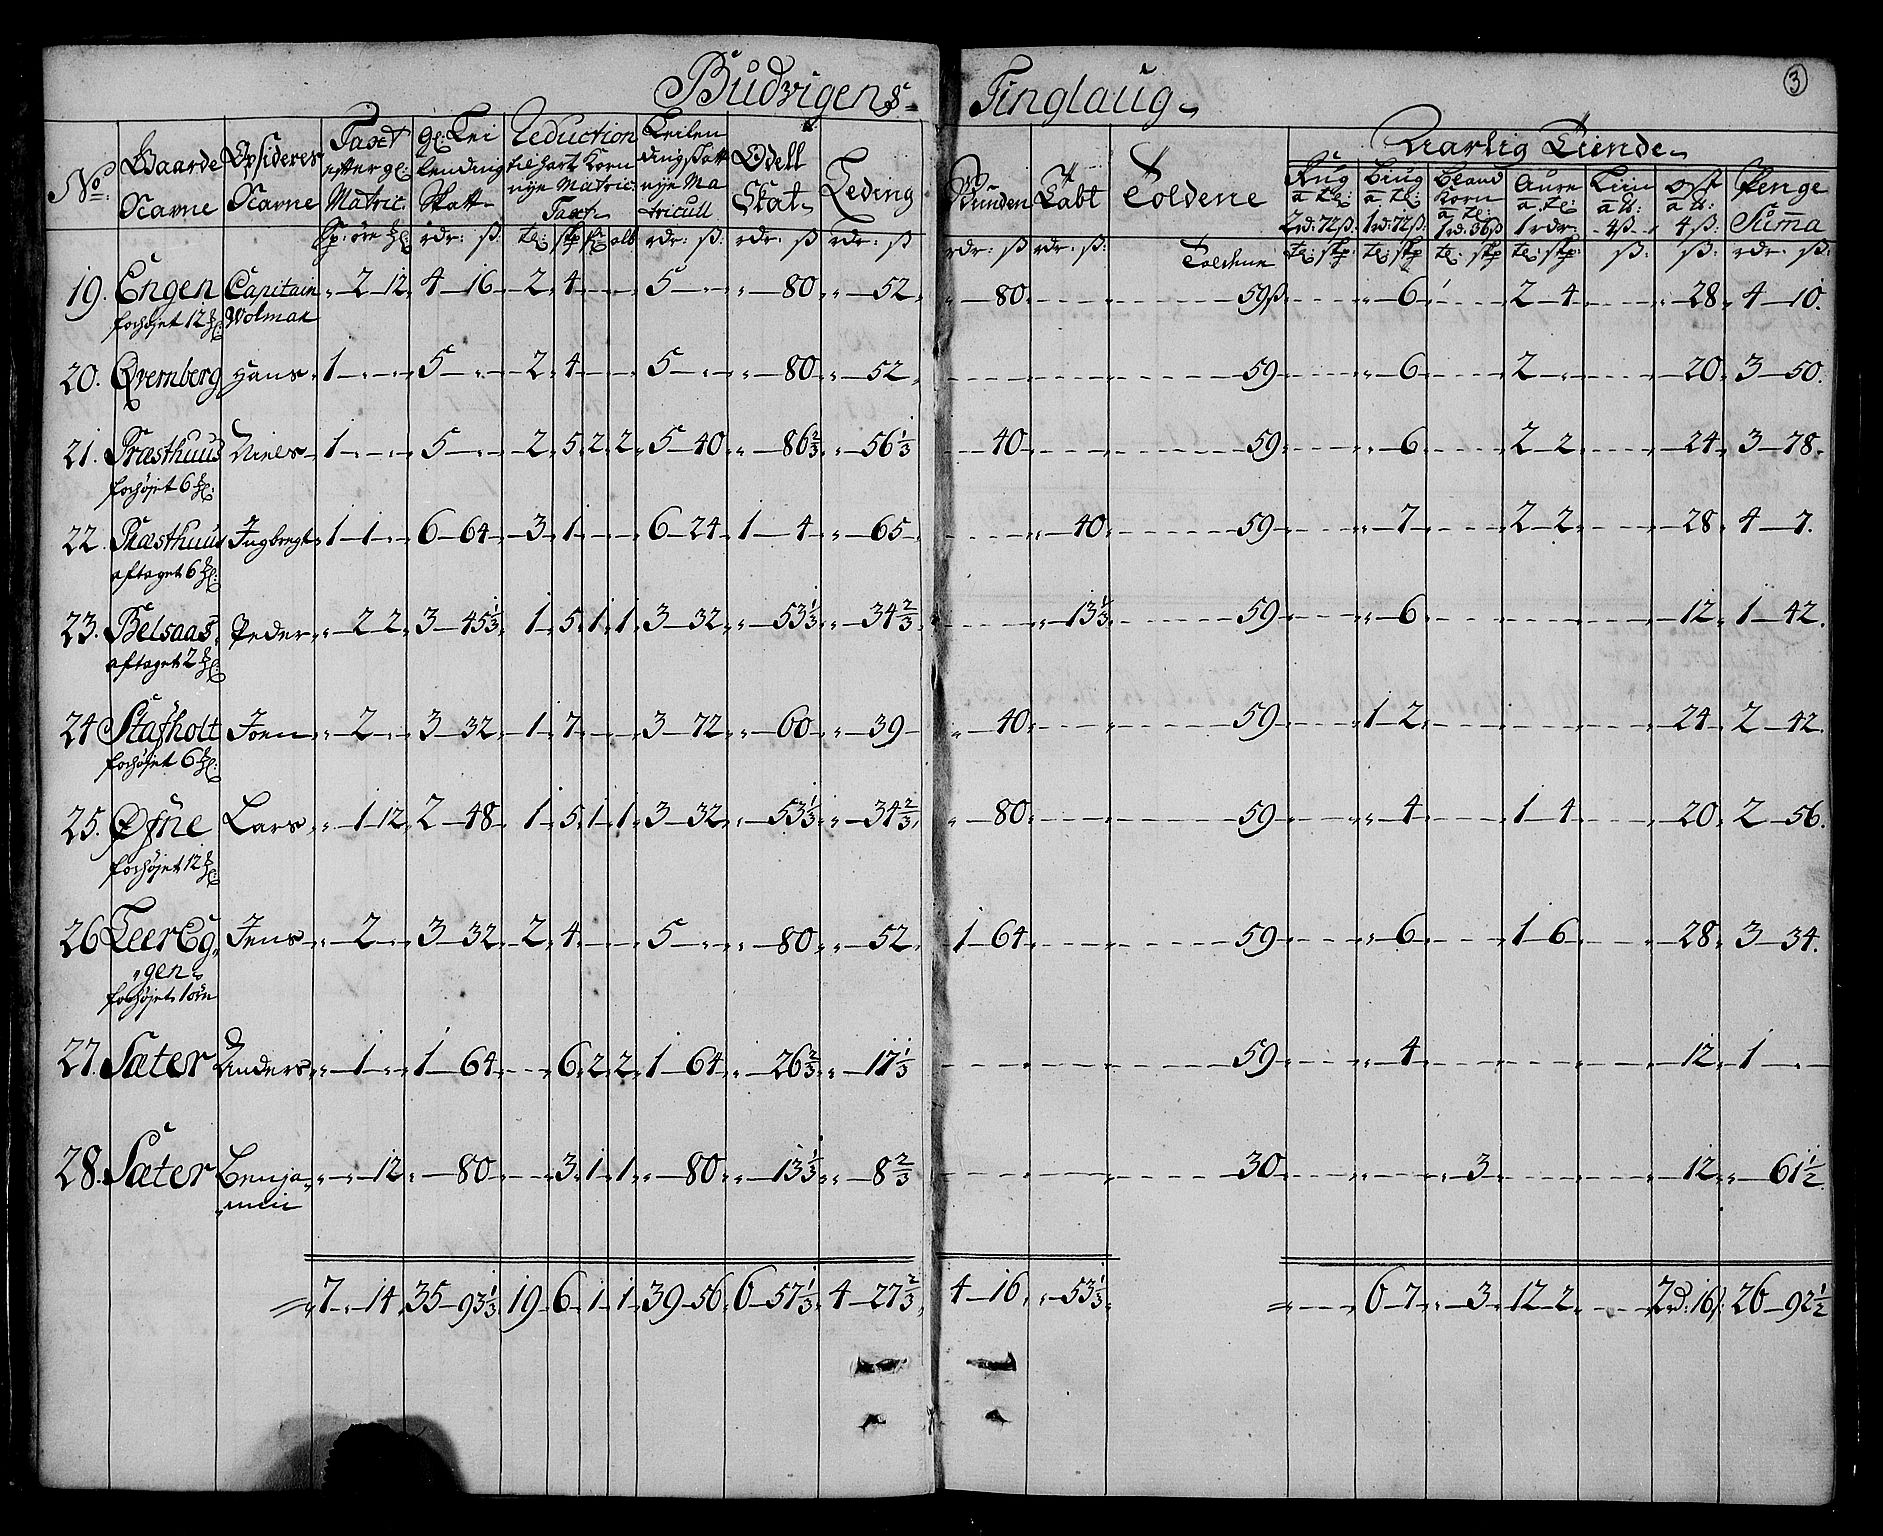 Budvigens Tinglaug
3
No: Gaarde Navne Opsiderer Navne Taxt efter gl: Matric: gl: Lei lending Skatt Reduction til Hart Korn nye Matric: Taxt Leilendings Skatt nye Matricull Odell Skat Leding
Sp: øre rdr: ß te: skp alb rdr: ß: rdr: ß rdr: ß
Toldene Aarlig Tiende
Rug a te: 2rd: 72ß Biug a te: 1rd: 72ß: Bland Korn a te: 1rd: 36ß Aure a te: 1 rdr: Liin 4ß ost 4ß: Penge Suma
rdr: ß rdr: ß: Toldene te: skp: te: skp te: skp te: skp: ß: ß: rdr: ß:
19. Engen Capitain 2 12 4 16 2 4 5 80 52 80 59ß 6 2 4 28 4 10.
forhøjet 12 Wolmar
20. Qvernberg Hans 1 5 2 4 5 80 52 59 6 2 20 3 50.
21. Præsthuus Niels 1 5 2 5 2 2 5 40 86 2/3 56 1/3 40 59 6 2 2 24 3 78.
forhøjet 6
22. Præsthuus Ingbregt 1 1 6 64 3 1 6 24 1 4 65 40 59 7 2 2 28 4 7.
aftaget 6
23. Belsaas Peder 2 2 3 45 1/3 1 5 1 1 3 32 53 1/3 34 2/3 13 1/3 59 6 12 1 42.
aftaget 2
24 Stafholt Joen 2 3 32 1 7 3 72 60 39 40 59 1 2 24 2 42.
forhøjet 6
25. Øfne Lars 1 12 2 48 1 5 1 1 3 32 53 1/3 34 2/3 80 59 4 1 4 20 2 56.
forhøjet 12
26 Leer Eg Jens 2 3 32 2 4 5 80 52 1 64 59 6 1 6 28 3 34.
gen
forhøjet 1 øre
27. Sæter Anders 1 1 64 6 2 2 1 64 26 2/3 17 1/3 59 4 12 1
28. Sæter Benja 12 80 3 1 1 80 13 1/3 8 2/3 30 3 12 61 1/2
min
7 14 35 93 1/3 19 6 1 1 39 56 6 57 1/3 4 27 2/3 4 16 53 1/3 6 7 3 12 2 2rd: 16ß: 26 92 1/2